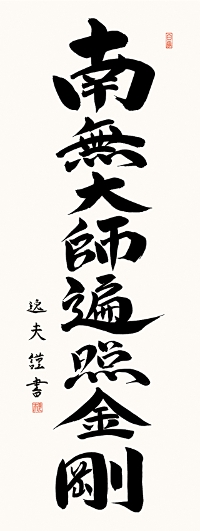 南無大師遍照金剛
逸夫謹書